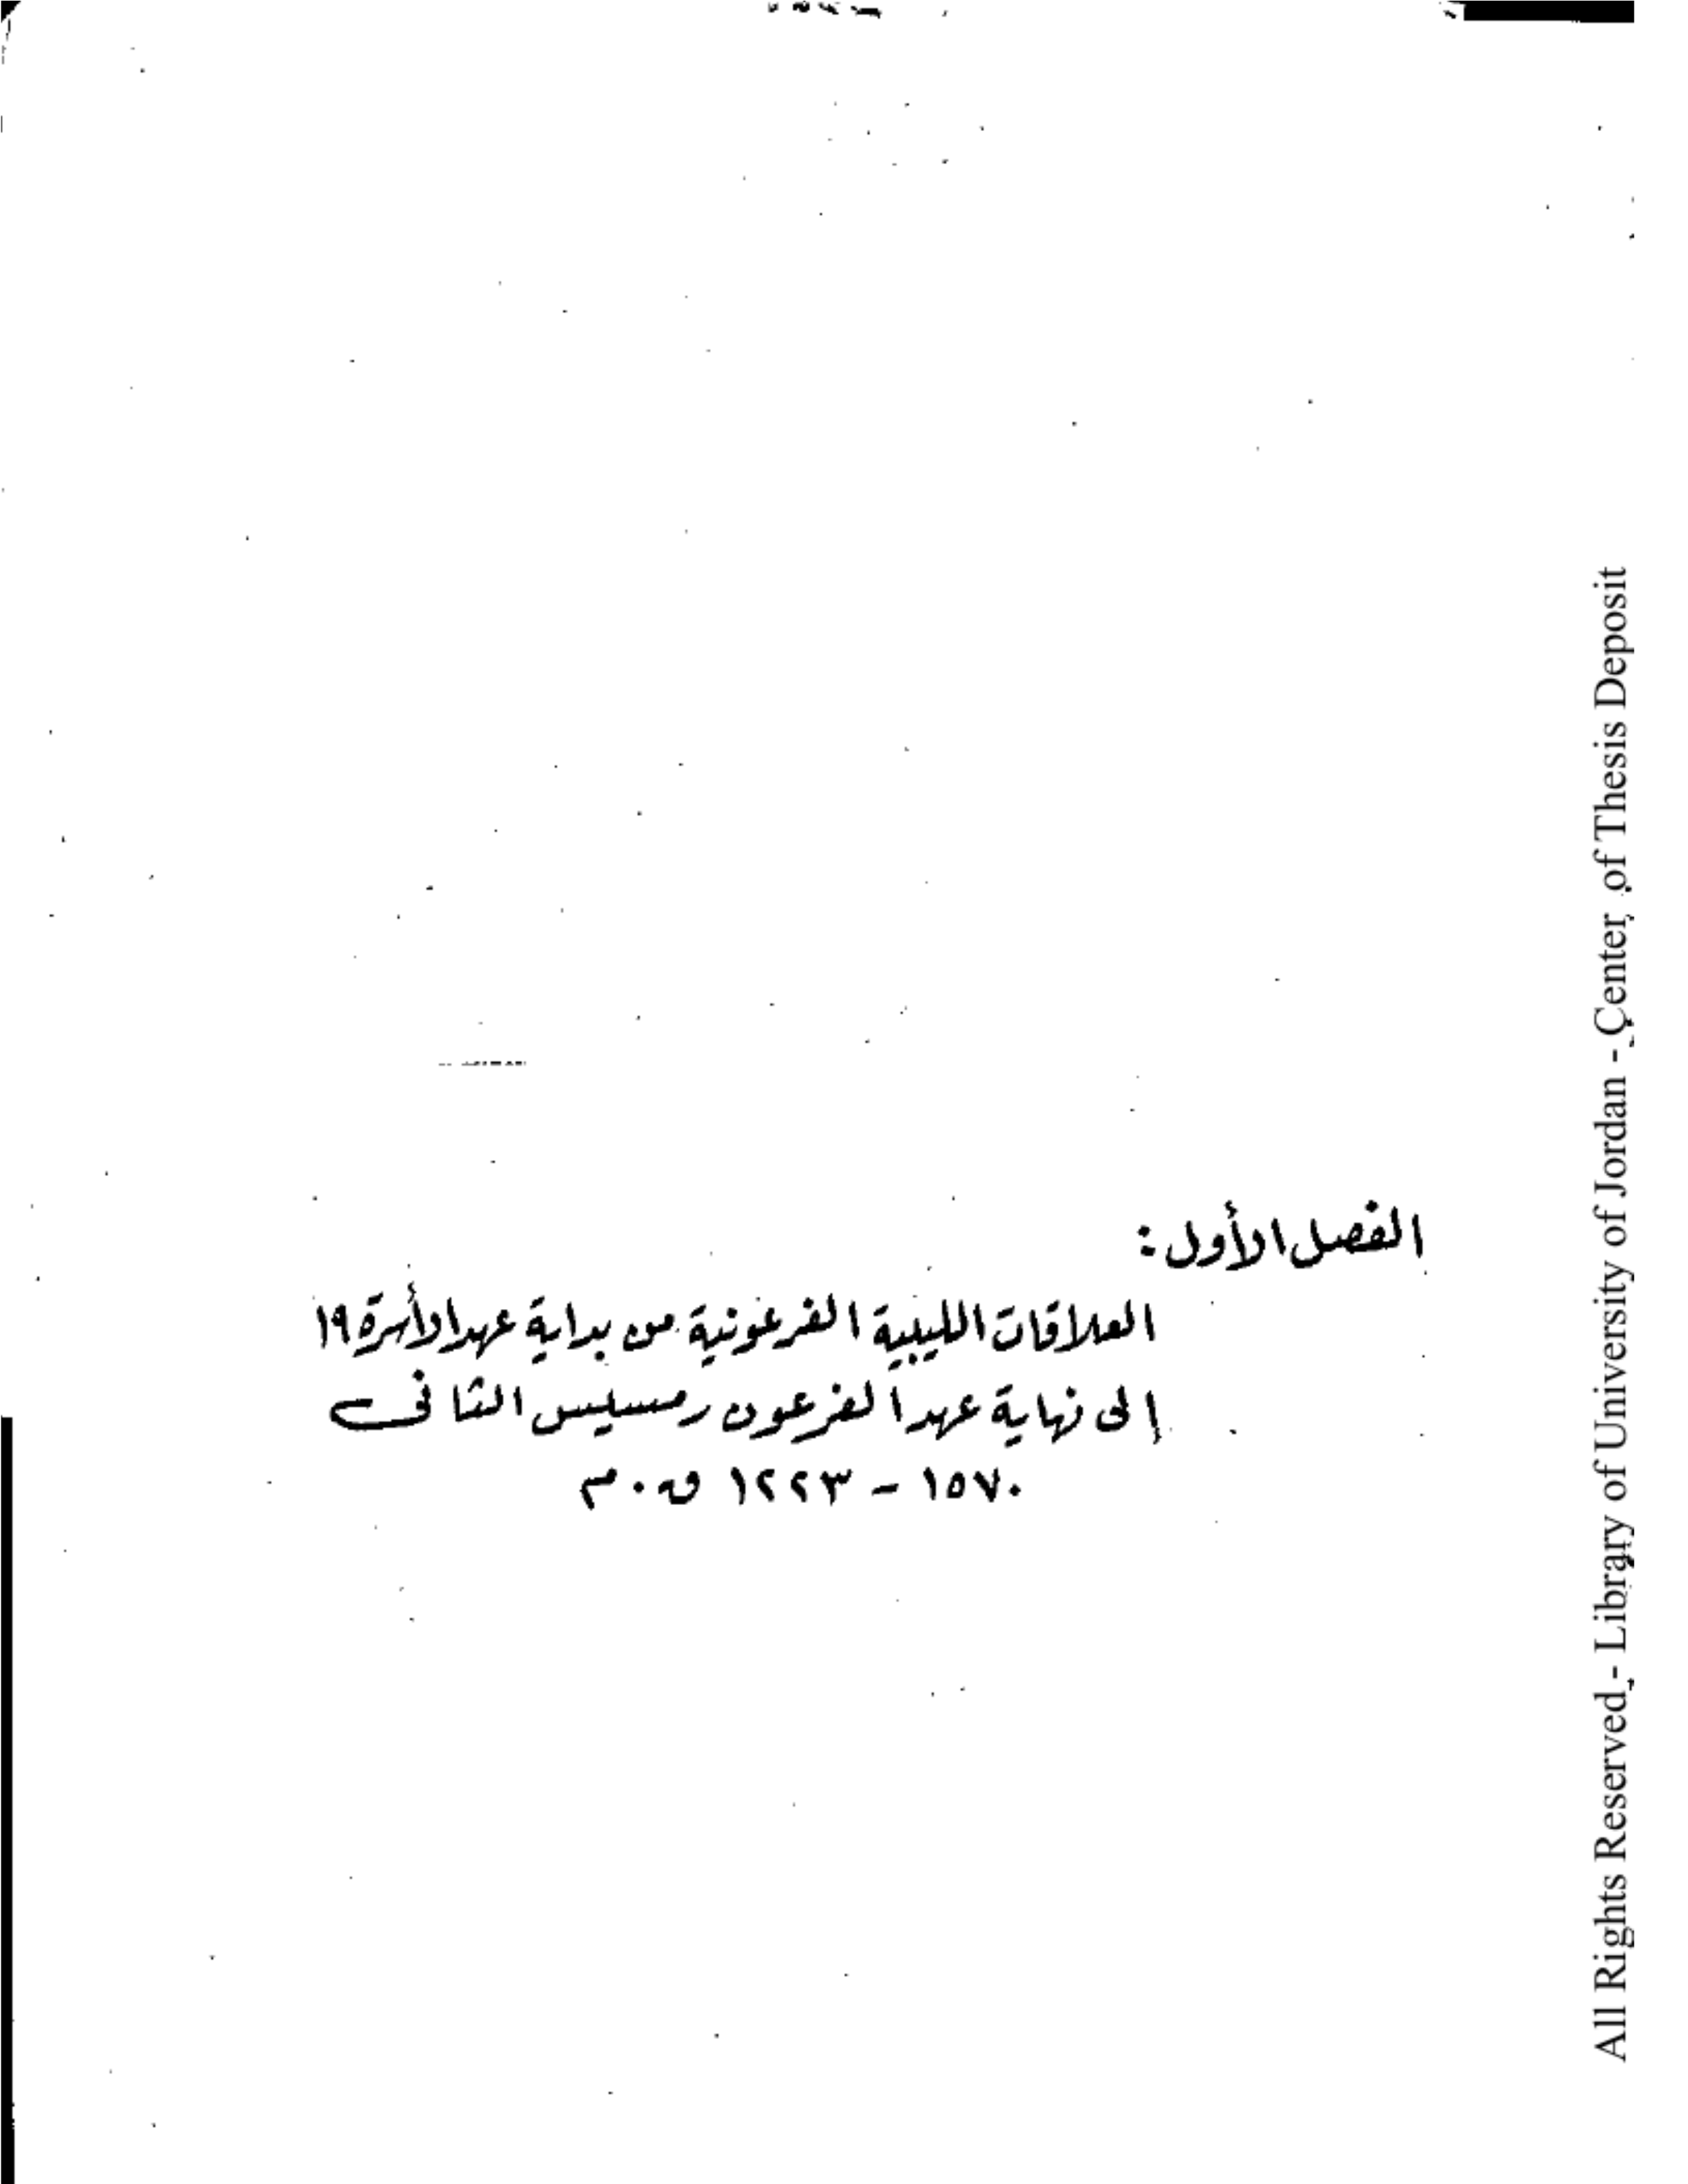 الفصل الأول:
العلاقات الليبية الفرعونية من بداية عهد الأسرة ١٩
إلى نهاية عهد الفرعون رمسيس الثاني
١٥٧٠ - ١٢٢٣ ق.م
All Rights Reserved - Library of University of Jordan - Center of Thesis Deposit